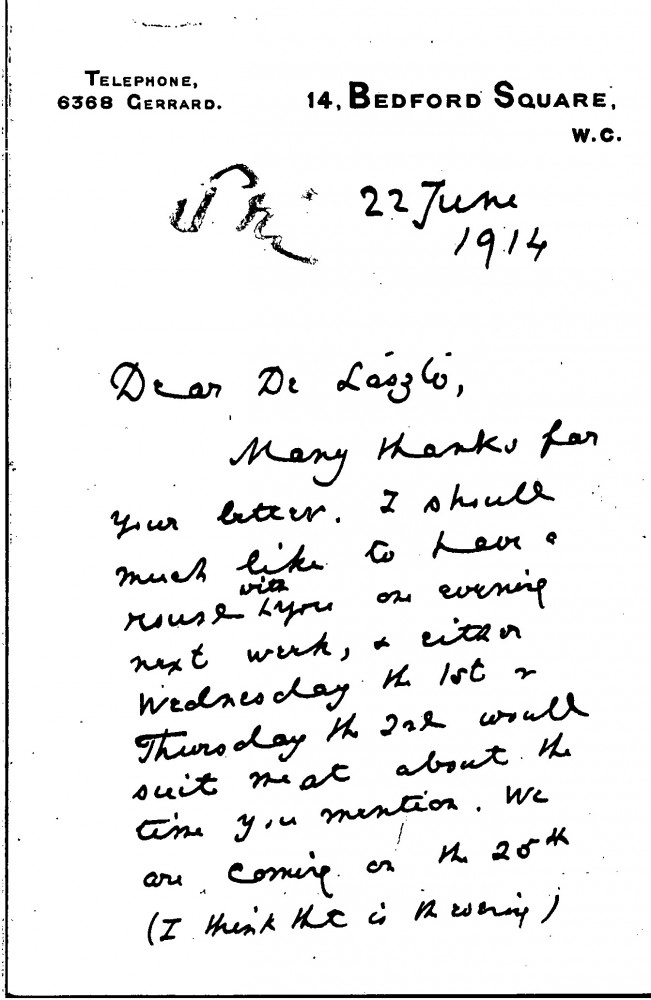 TELEPHONE,
6368 GERRARD.
14, BEDFORD SQUARE,
W.C.
22 June
1914
Dear De László,
Many thanks for
your letter. I should
much like to have a
with
round you one evening
next week, & either
Wednesday the 1st or
Thursday the 2nd would
suit me at about the
time you mention. We
are coming on the 25th
(I think that is the evening)